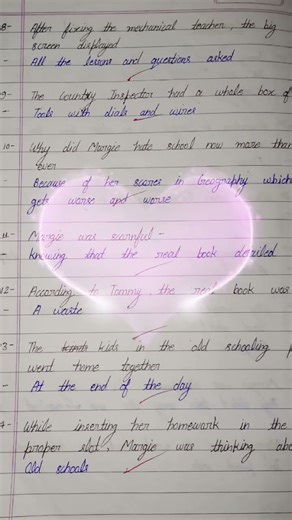 8- After fixing the mechanical teacher, the big
screen displayed
- All the lessons and questions asked
9- The Country Inspector had a whole box of
- Tools with dials and wires
10- Why did Margie hate school now more than
ever
- Because of her scores in Geography which
gets worse and worse
11- Margie was scornful -
- Knowing that the real book detailed
12- According to Tommy, the real book was
- A waste
3- The kids in the old schooling
went home together
- At the end of the day
4- While inserting her homework in the
proper slot, Margie was thinking abo
Old schools